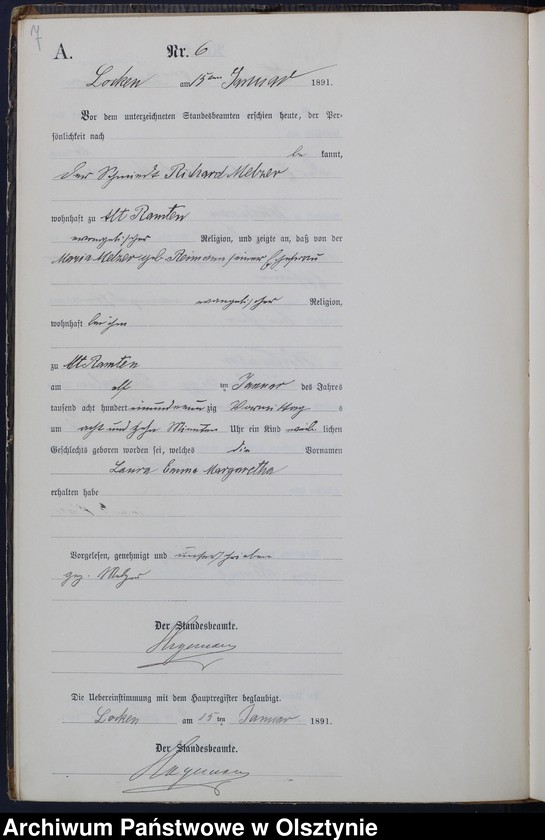 7
A. Nr. 6
Locken am 15ten Januar 1891.
Vor dem unterzeichneten Standesbeamten erschien heute, der Per-
sönlichkeit nach
be kannt,
der Schmiedt Richard Melzer
wohnhaft zu Alt Ramten
evangelischer Religion, und zeigte an, daß von der
Maria Melzer geb Reimann seiner Ehefrau
evangelischer Religion,
wohnhaft bei ihm
zu Alt Ramten
am elf ten Januar des Jahres
tausend acht hundert einundneun zig Vormittag s
um acht und zehn Minuten Uhr ein Kind weib lichen
Geschlechts geboren worden sei, welches die Vornamen
Laura Emma Margaretha
erhalten habe
Vorgelesen, genehmigt und unterschrieben
gez. Melzer
Der Standesbeamte.
Hagemann
Die Uebereinstimmung mit dem Hauptregister beglaubigt.
Locken am 15 ten Januar 1891.
Der Standesbeamte.
Hagemann
Archiwum Państwowe w Olsztynie